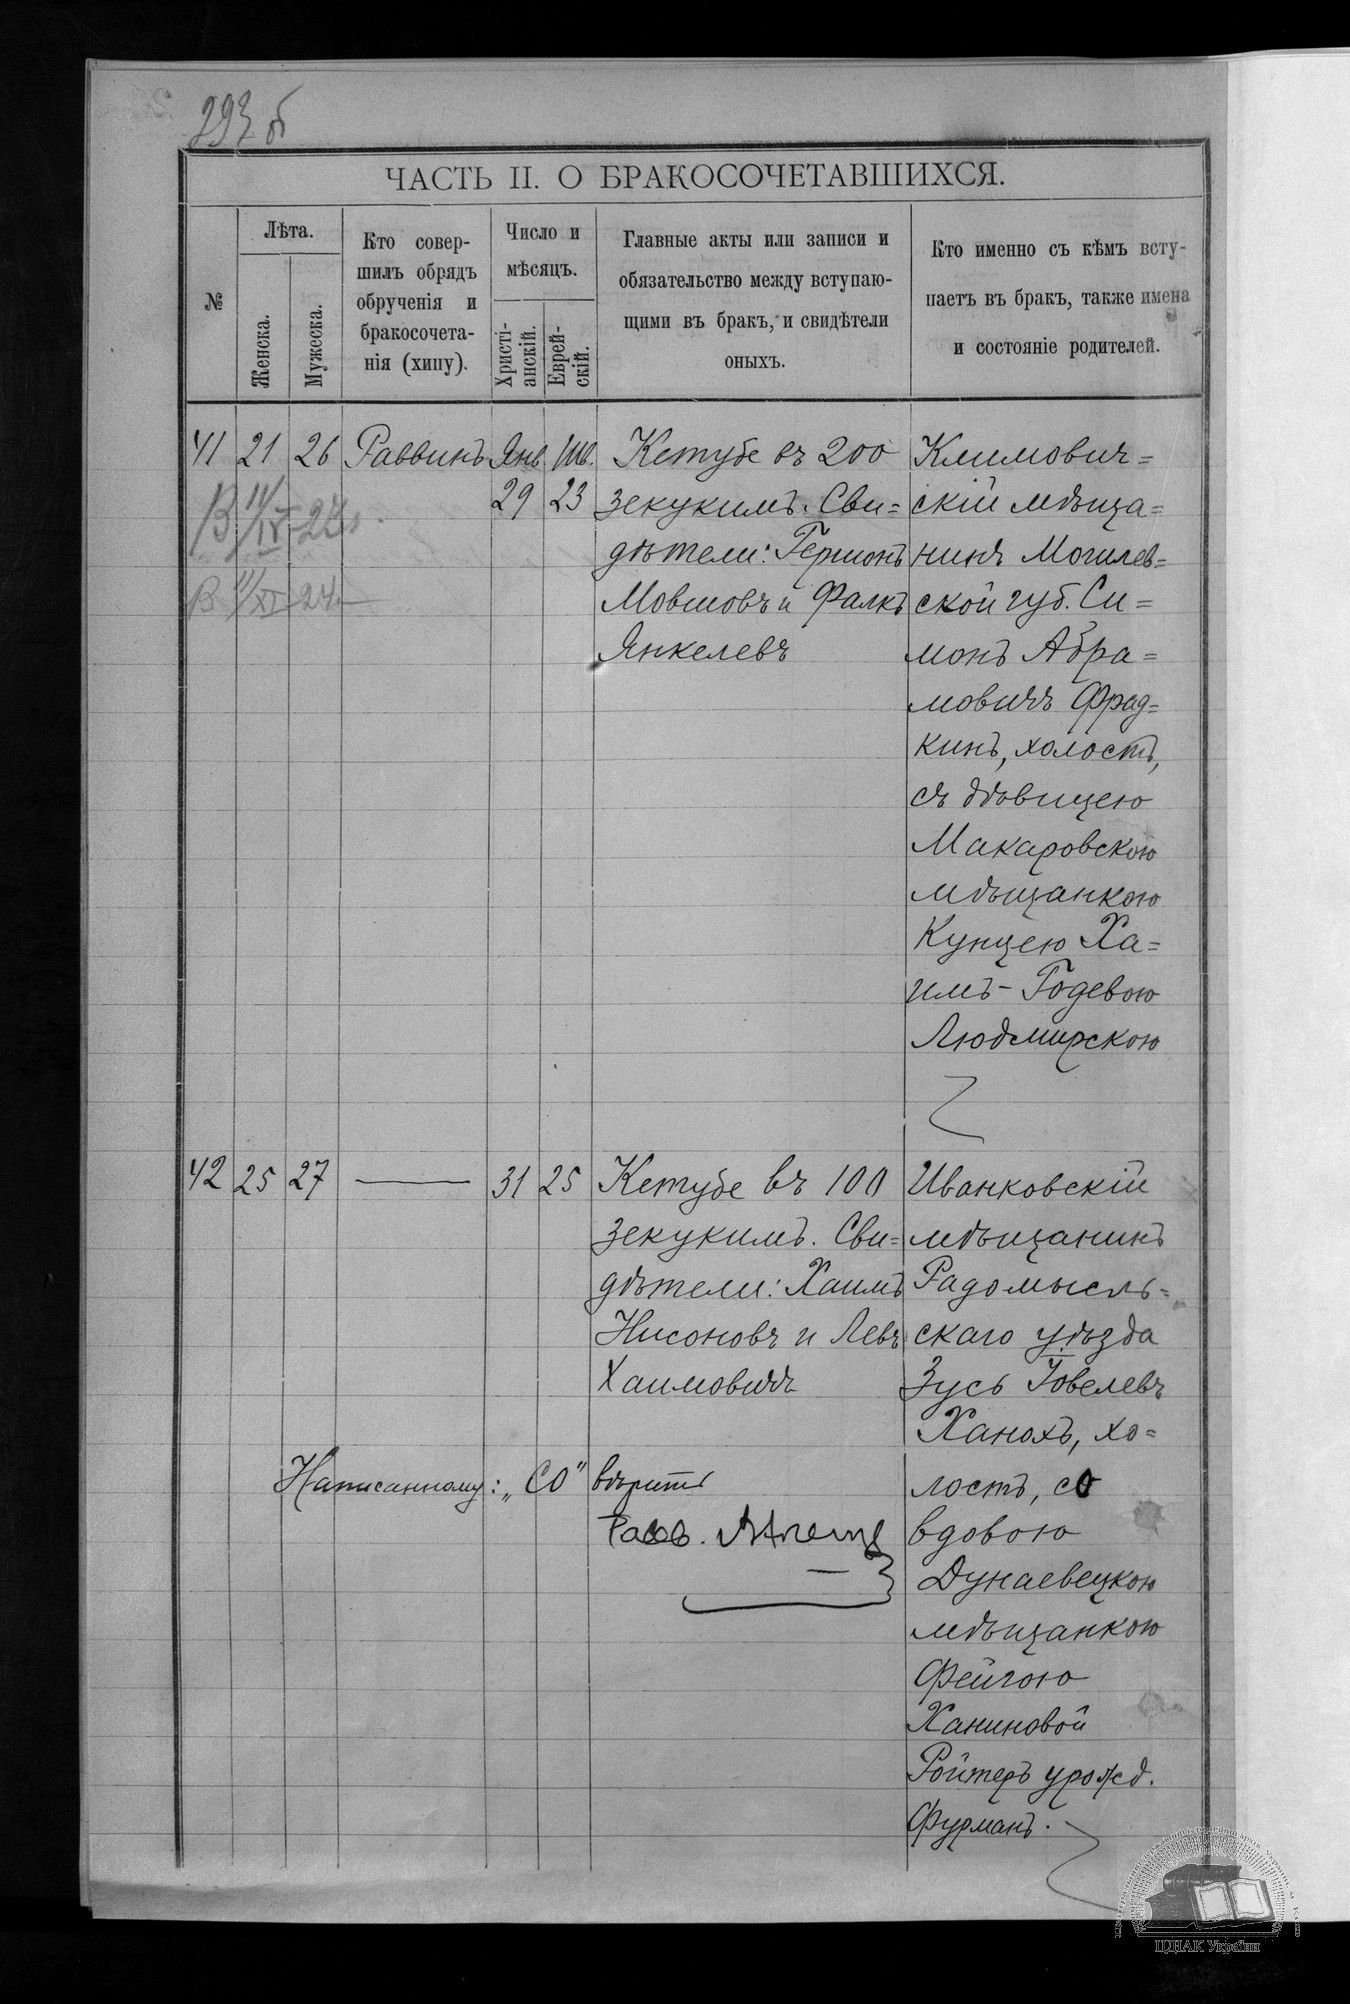 293 об
ЧАСТЬ II. О БРАКОСОЧЕТАВШИХСЯ.
№
Лѣта.
Женска.
Мужеска.
Кто совер-
шилъ обрядъ
обрученія и
бракосочета-
нія (хипу).
Число и
мѣсяцъ.
Христі-
анскій.
Еврей-
скій.
Главные акты или записи и
обязательство между вступаю-
щими въ бракъ, и свидѣтели
оныхъ.
Кто именно съ кѣмъ всту-
паетъ въ бракъ, также имена
и состояніе родителей.
41 21 26 Раввинъ Янв. Шв.
29 23
В 11/IV-24
В 11/XI-24
Кетубе въ 200
зекукимъ. Сви=
дѣтели: Гершонъ
Мовшовъ и Фалкъ
Янкелевъ
Климович=
скій мѣща=
нинъ Могилев=
ской губ. Си=
монъ Абра=
мовичъ Фрад=
кинъ, холостъ,
съ дѣвицею
Макаровскою
мѣщанкою
Кунцею Ха=
имъ-Годевою
Людмирскою
42 25 27 — 31 25
Кетубе въ 100
зекукимъ. Сви=
дѣтели: Хаимъ
Нисоновъ и Левъ
Хаимовичъ
Иванковскій
мѣщанинъ
Радомысль=
скаго уѣзда
Зусь Іовелевъ
Ханохъ, хо=
лостъ, со
вдовою
Дунаевецкою
мѣщанкою
Фейгою
Ханиновой
Ройтеръ урожд.
Фурманъ.
Написанному: „СО" вѣрить
Равв.
ЦДІАК України